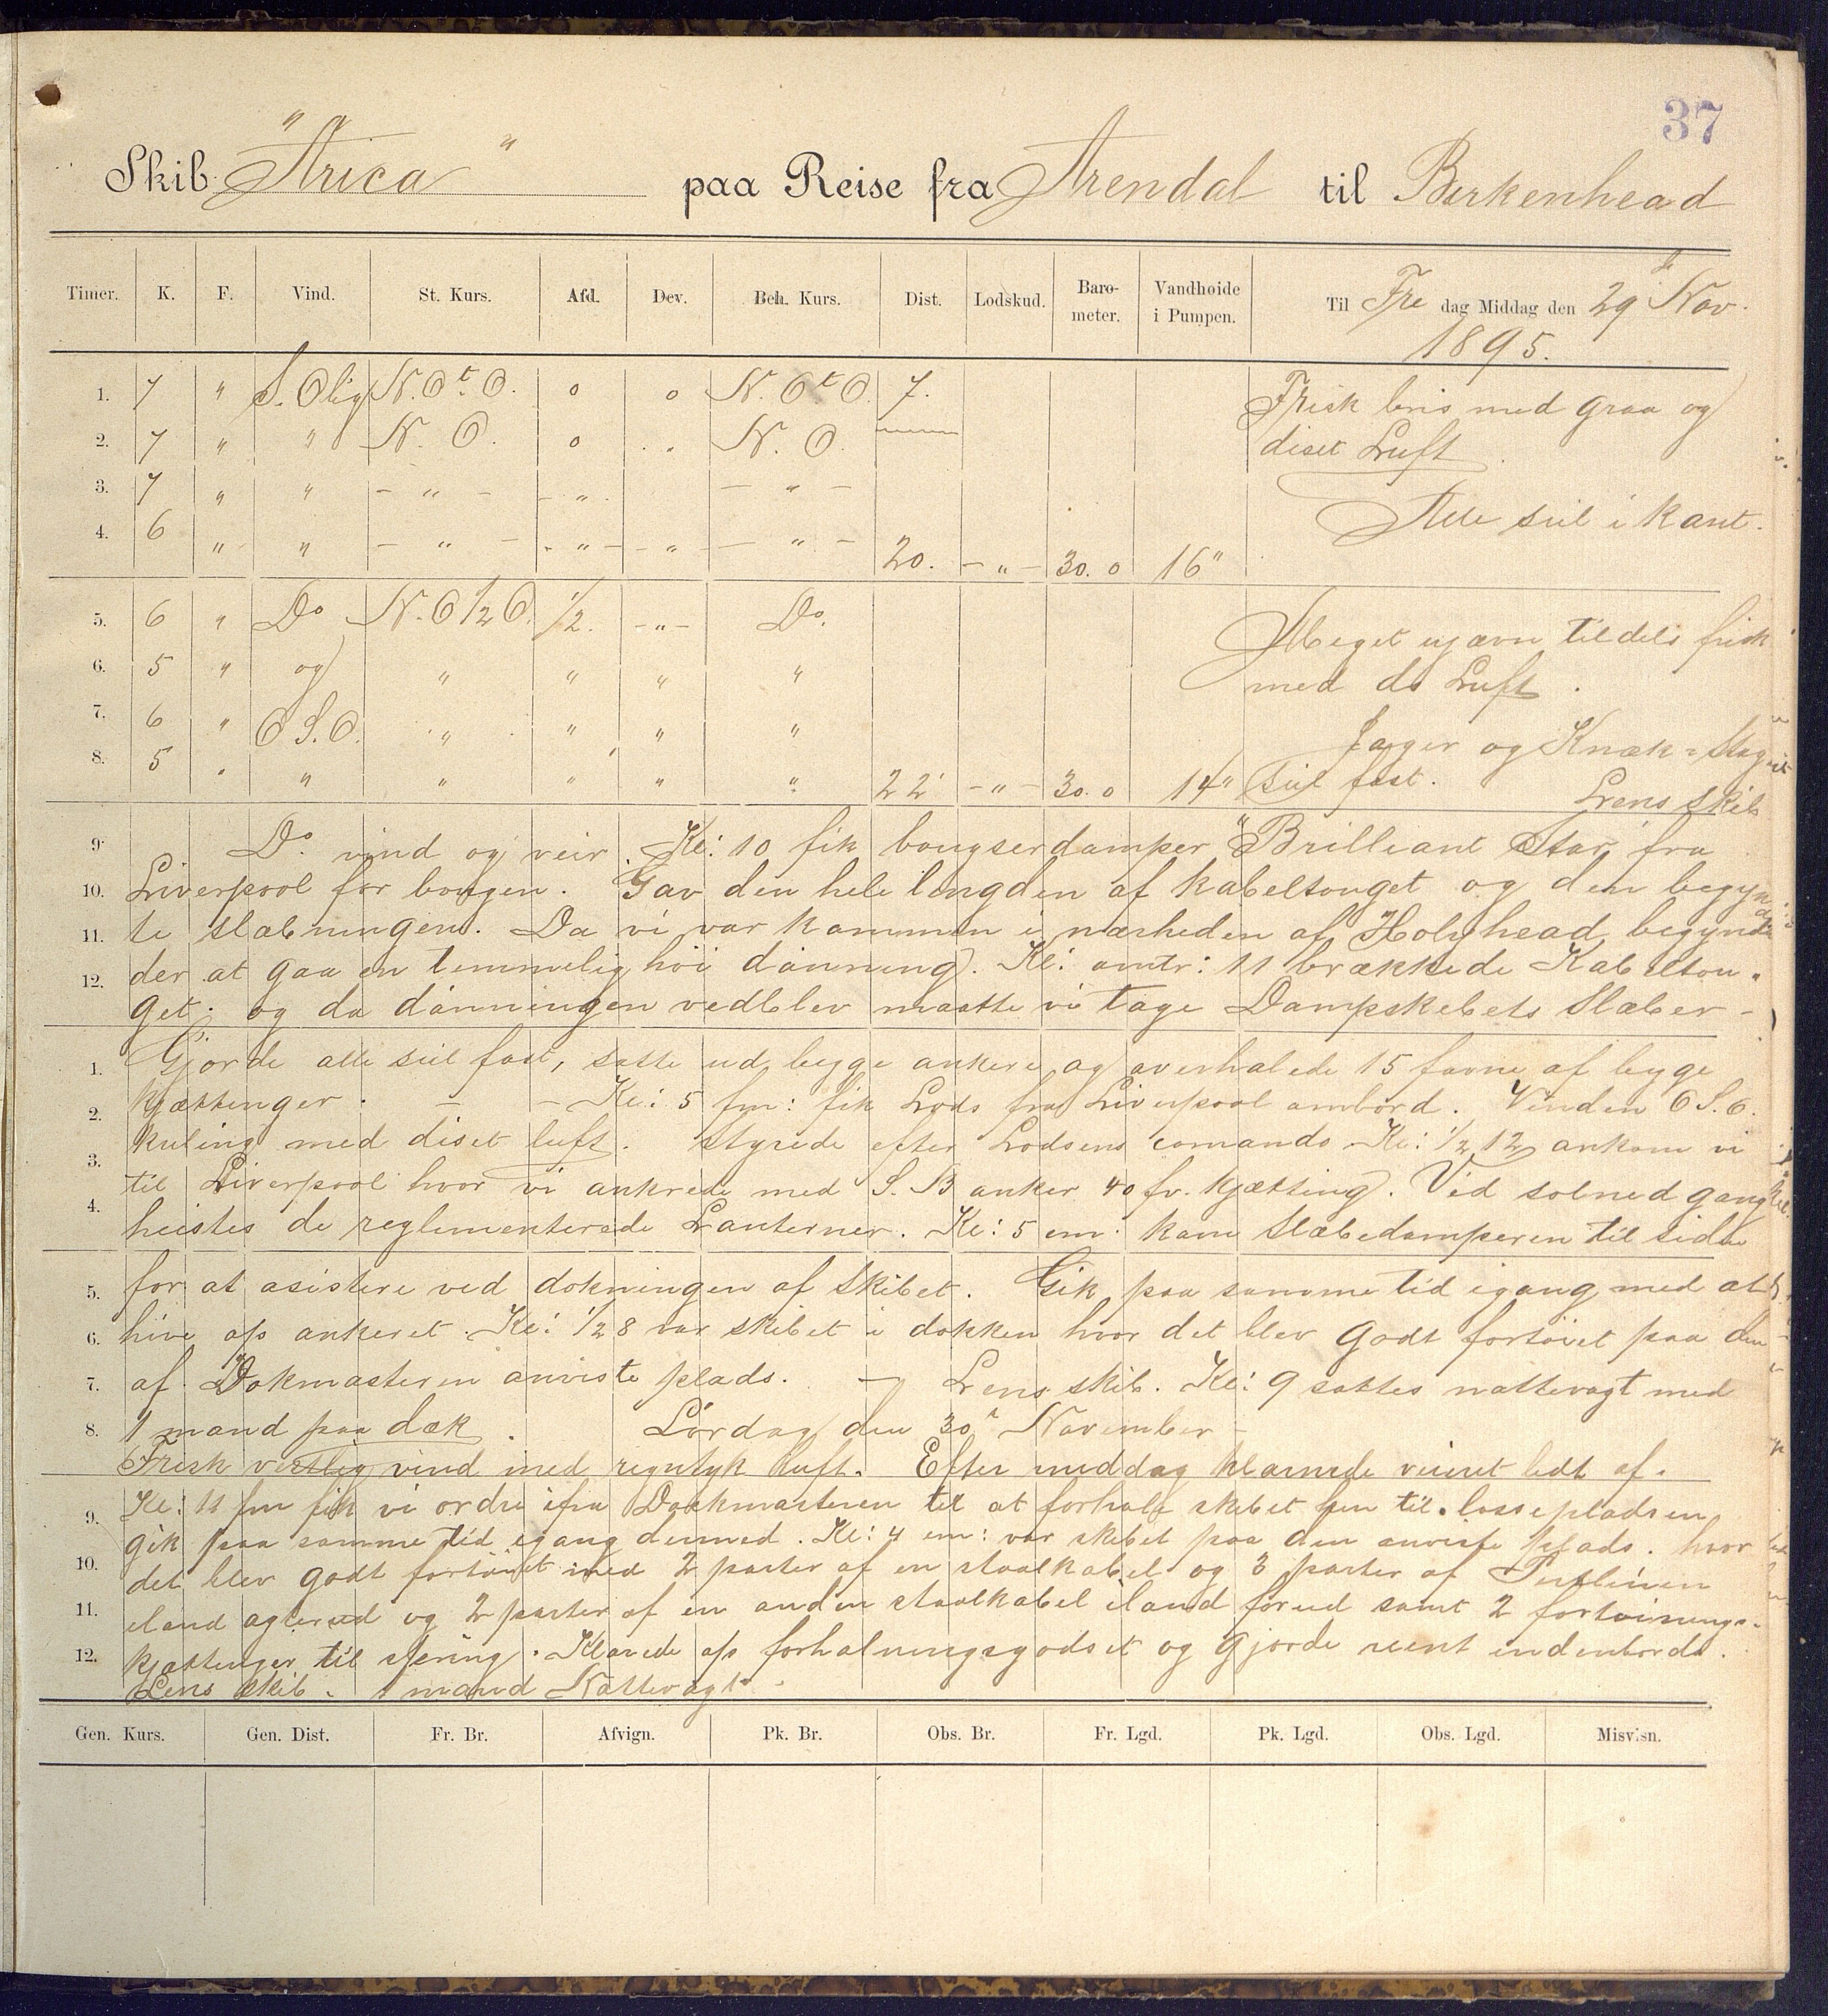 37
Skib "Arica" paa Reise fra Arendal til Birkenhead
Timer. K. F. Vind. St. Kurs. Afd. Dev. Beh. Kurs. Dist. Lodskud. Barometer. Vandhøide i Pumpen. Til Fre dag Middag den 29 Nov. 1895.
1. 7 " S. Olig N. O t. O. 0 0 N. O t. O. 7. Frisk bris med graa og
2. 7 " " N. O. 0 . " N. O. diset Luft.
3. 7 " " - " - - " - - " - Alle seil i kant.
4. 6 " " - " - - " - - " - - " - 20. - " - 30.0 16"
5. 6 " Do N. O 1/2 O. 1/2. - " - Do. Meget ujævn tildels frisk
6. 5 " og " " " " med do Luft.
7. 6 " O S. O. " " " " Jager og Knæk = Stag
8. 5 " " " " " " 22' - " - 30.0 14" seil fast. Lens skib
9. Do. vind og veir. Kl: 10 fik bougserdamper "Brilliant Star fra
10. Liverpool for bougen. Gav den hele lengden af kabeltouget og den begyn
11. te slæbningen. Da vi var kommen i nærheden af Holyhead begyndte
12. der at gaa en temmelig höi dönning. Kl: omtr: 11 brækkede Kabeltou-
get; og da dönningen vedblev maatte vi tage Dampskibets Slæber-
1. Gjorde alle seil fast, satte ud begge ankere og overhalede 15 favne af begge
2. kjættinger. - - Kl: 5 fm: fik Lods fra Liverpool ombord. Vinden O S. O.
3. kuling med diset luft. Styrede efter Lodsens comando Kl: 1/2 12 ankom vi
4. til Liverpool hvor vi ankrede med S. B anker 40 fv. kjætting. Vid solnedgang
heistes de reglementerede Lanterner. Kl: 5 em: kom Slæbedamperen til siden
5. for at asistere ved dokningen af skibet. Gik paa samme tid igang med at
6. hive op ankeret. Kl: 1/2 8 var skibet i dokken hvor det blev godt fortöiet paa den
7. af Dokmasteren anviste plads. - Lens skib. Kl: 9 sattes nattevagt med
8. 1 mand paa dæk. Lördag den 30 November
Frisk vestlig vind med regntyk luft. Efter middag klarnede veiret lidt af.
9. Kl: 11 fm fik vi ordre ifra Dockmasteren til at forhale skibet hen til lossepladsen
10. gik paa samme tid igang dermed. Kl: 4 em: var skibet paa den anviste plads. hvor
det blev godt fortöiet med 2 parter af en staalkabel og 3 parter af
11. iland agterud og 2 parter af en anden staalkabel iland forud samt 2 fortöinings-
12. kjættinger til spring. Klarede op forhalningsgodset og gjorde reent indenbords.
Lens skib. 1 mand Nattevagt.
Gen. Kurs. Gen. Dist. Fr. Br. Afvign. Pk. Br. Obs. Br. Fr. Lgd. Pk. Lgd. Obs. Lgd. Misvisn.